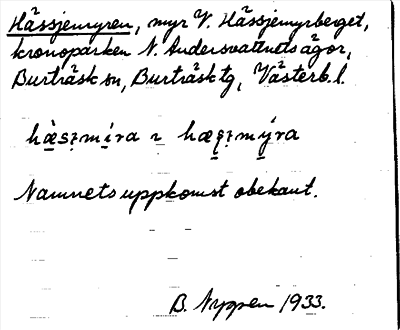 Hässjemyren, myr V. Hässjemyrberget,
kronoparken N. Andersvattnets ägor,
Burträsk sn, Burträsk tg, Västerb. l.
Namnets uppkomst obekant.
B. Nyppen 1933.